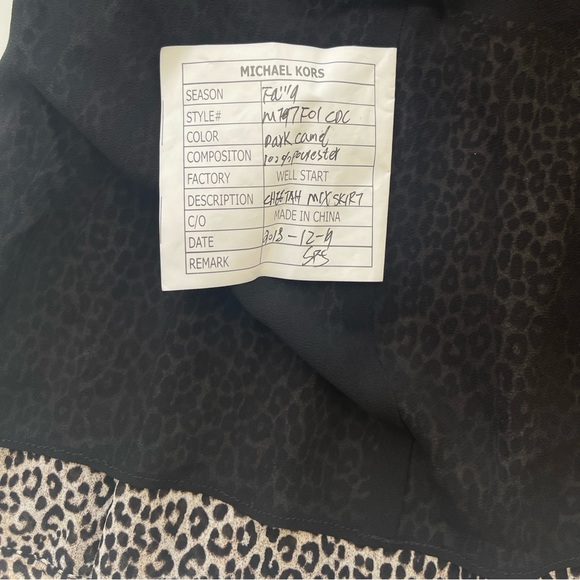 MICHAEL KORS
SEASON Fall'19
STYLE#
COLOR Dark camel
COMPOSITON 100% Polyester
FACTORY WELL START
DESCRIPTION CHEETAH MIX SKIRT
C/O MADE IN CHINA
DATE 2018-12-9
REMARK